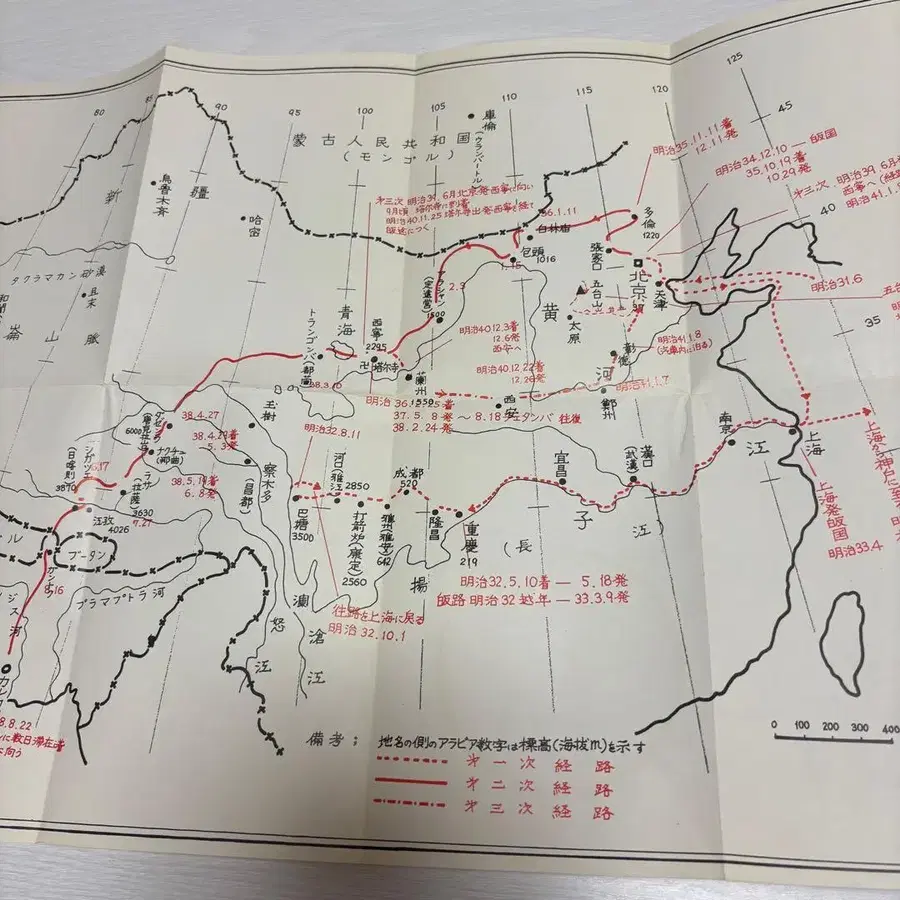 80
85
90
95
100
105
110
115
120
125
45
40
35
蒙古人民共和国
(モンゴル)
庫倫
(ウランバートル)
新
疆
烏魯木斉
哈密
タクラマカン砂漠
且末
崙山脈
青海
トランゴンバ(都蘭)
西寧
2295
卍塔尔寺
蘭州
1550
アラシャン
(定遠営)
1500
白林廟
包頭
1016
多倫
1220
張家口
北京
天津
五台山
太原
彰徳
黄
河
鄭州
西安
南京
上海
江
漢口
(武漢)
宜昌
子
(長
江)
揚
重慶
219
隆昌
成都
520
雅州(雅安)
642
打箭炉(康定)
2560
河口(雅江)
2850
巴塘
3500
察木多
(昌都)
玉樹
6000
ナクチュ
ラサ
(拉薩)
3630
シガツェ
(日喀則)
3870
江孜
4026
ブータン
ブラマプトラ河
ガントク
瀾滄江
怒
江
明治35.11.11着
12.11発
明治34.12.10—皈国
35.10.19着
10.29発
第三次 明治39.6月
西寧へ
明治41.1.
第三次 明治39.6月北京発西寧に向い
9月頃 塔尔寺に到着
明治40.11.25 塔尔寺出発西寧を経て
皈途につく
36.1.11
1.15
2.3
明治40.12.3着
12.6発
西安へ
明治40.12.22着
12.26発
明治41.1.8
(汽車内に泊る)
明治41.1.7
明治31.6
38.3.10
明治36
37.5.8
8.18タンバ 往復
38.2.24発
明治32.8.11
38.4.27
38.4.29着
5.3発
38.5.19着
6.8発
7.27
8.16
8.8.22
に数日滞在
に向う
往路を上海に戻る
明治32.10.1
明治32.5.10着—5.18発
皈路 明治32越年—33.3.9発
上海から神戸に至
上海発皈国
明治33.4
備考; 地名の側のアラビア数字は標高(海抜m)を示す
第一次経路
第二次経路
第三次経路
0 100 200 300 400